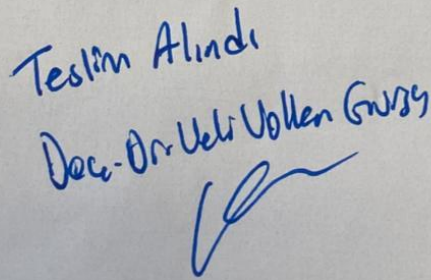 Teslim Alındı
Doç. Dr. Veli Volkan